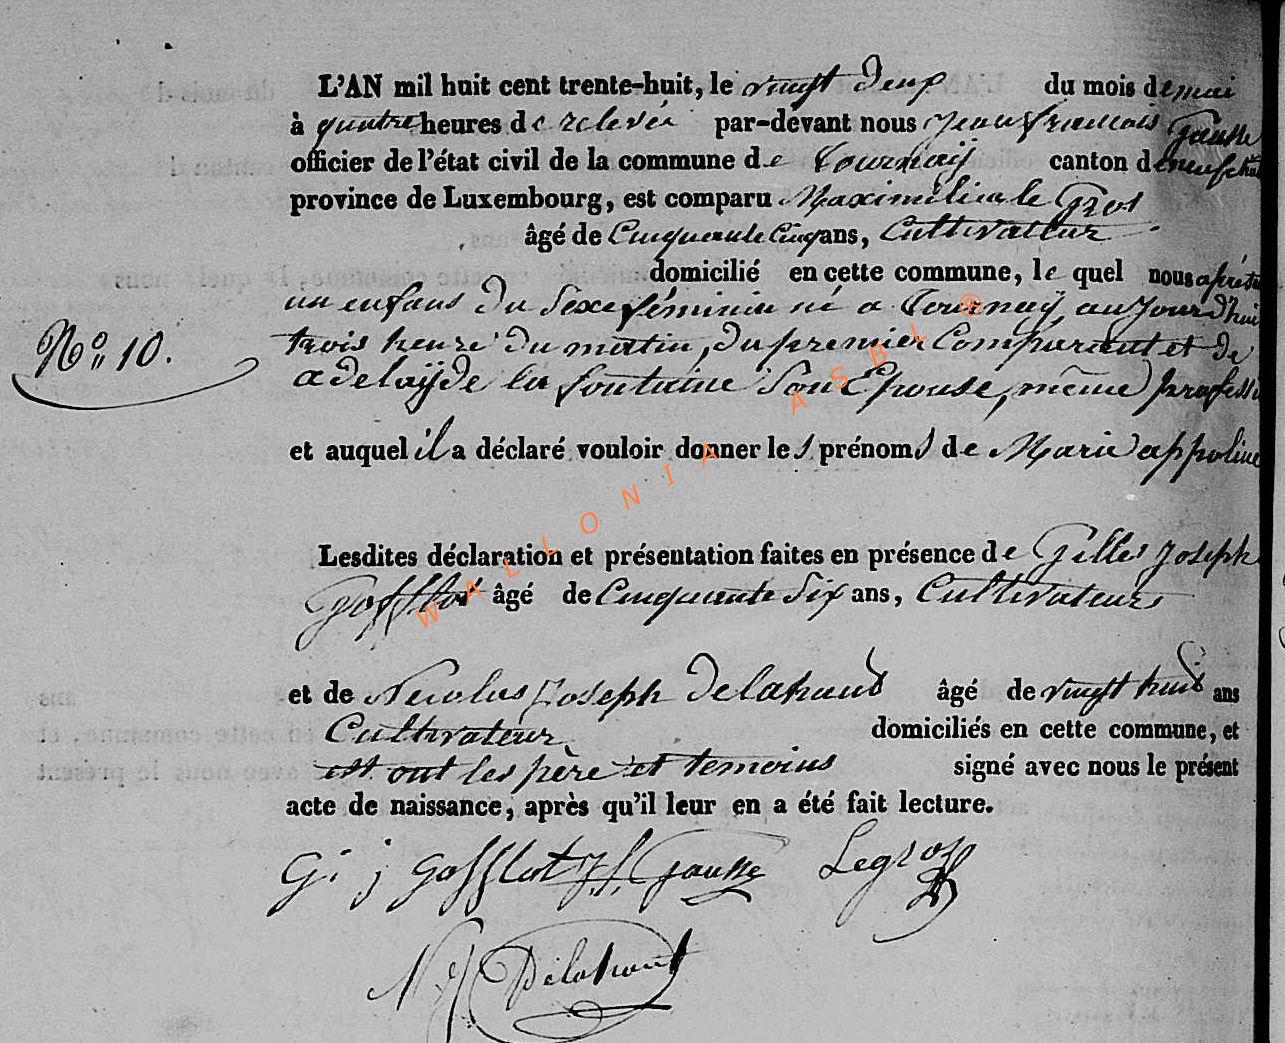 L'AN mil huit cent trente-huit, le vingt deux du mois de mai
à quatre heures de relevée par-devant nous jean francois Gausse
officier de l'état civil de la commune de Tournay canton de neufchat
province de Luxembourg, est comparu Maximilien le Gros
âgé de Cinquante Cinq ans, Cultivateur
domicilié en cette commune, lequel nous a présenté
un enfans du Sexe féminin né a Tournay, aujourd'hui
N° 10. trois heure du matin, du premier Comparant et de
adelayde la fontaine Son Epouse, même professi
et auquel il a déclaré vouloir donner les prénoms de Marie appoline
Lesdites déclaration et présentation faites en présence de Gilles joseph
Gofflot âgé de Cinquante Six ans, Cultivateur
et de Nicolas Joseph Delahaut âgé de vingt huit ans
Cultivateur domiciliés en cette commune, et
est ont les père et temoins signé avec nous le présent
acte de naissance, après qu'il leur en a été fait lecture.
G. j Gofflot J. f. Gausse Legros
N J Delahaut
WALLONIA ASBL ®